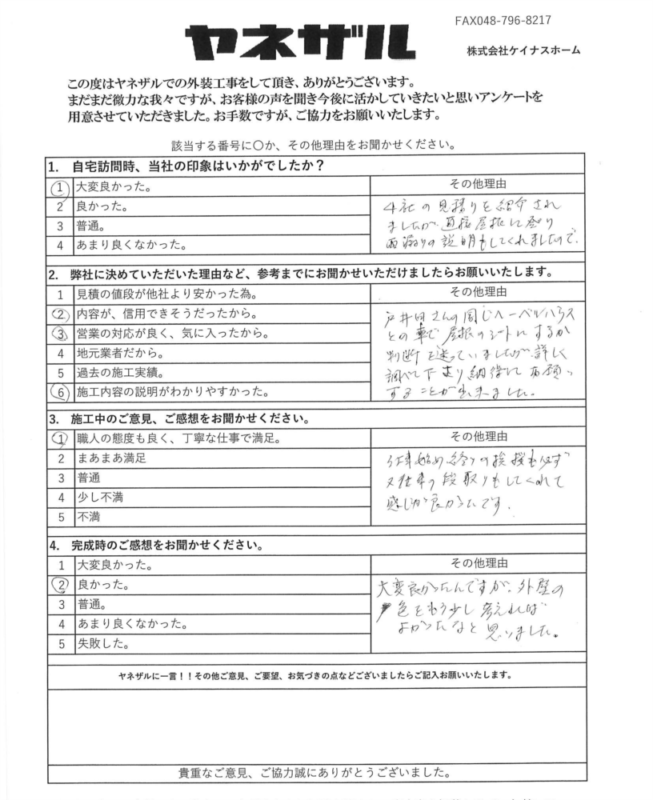 FAX048-796-8217
ヤネザル
株式会社ケイナスホーム
この度はヤネザルでの外装工事をして頂き、ありがとうございます。
まだまだ微力な我々ですが、お客様の声を聞き今後に活かしていきたいと思いアンケートを
用意させていただきました。お手数ですが、ご協力をお願いいたします。
該当する番号に〇か、その他理由をお聞かせください。
1. 自宅訪問時、当社の印象はいかがでしたか？
1 大変良かった。
その他理由
2 良かった。
3 普通。
4 あまり良くなかった。
4社の見積りを紹介され
ましたが直接屋根に登り
雨漏りの説明もしてくれましたので、
2. 弊社に決めていただいた理由など、参考までにお聞かせいただけましたらお願いいたします。
1 見積の値段が他社より安かった為。
その他理由
2 内容が、信用できそうだったから。
3 営業の対応が良く、気に入ったから。
4 地元業者だから。
5 過去の施工実績。
6 施工内容の説明がわかりやすかった。
さんの同じヘーベルハウス
との事で屋根のシートにするか
判断を迷っていましたが詳しく
調べて下さり納得してお願い
することが出来ました。
3. 施工中のご意見、ご感想をお聞かせください。
1 職人の態度も良く、丁寧な仕事で満足。
その他理由
2 まあまあ満足
3 普通
4 少し不満
5 不満
仕事始め終りの挨拶も必ず
又仕事の段取りもしてくれて
感じが良かったです。
4. 完成時のご感想をお聞かせください。
1 大変良かった。
その他理由
2 良かった。
3 普通。
4 あまり良くなかった。
5 失敗した。
大変良かったんですが、外壁の
色をもう少し考えれば
よかったなと思いました。
ヤネザルに一言！！その他ご意見、ご要望、お気づきの点などございましたらご記入お願いいたします。
貴重なご意見、ご協力誠にありがとうございました。